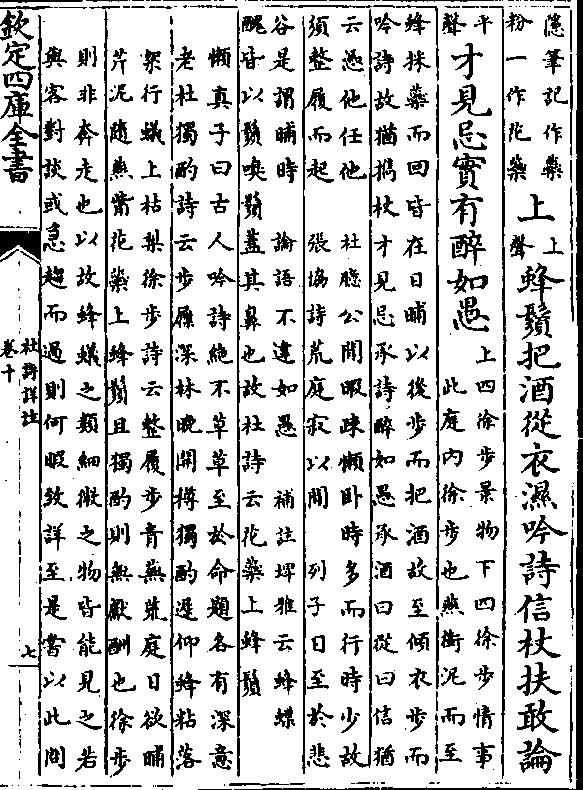 隱筆記作蘂
粉一作花蘂
上
上
聲
蜂鬚把酒從衣濕吟詩信杖扶敢論
平
聲
才見忌實有醉如愚
上四徐步景物下四徐步情事
此庭内徐步也燕銜泥而至
蜂採蘂而回皆在日晡以後步而把酒故至傾衣步而
吟詩故猶携杖才見忌承詩醉如愚承酒曰從曰信猶
云憑他任他　杜臆公閒暇疎懶卧時多而行時少故
須整履而起　張協詩荒庭寂以閒　列子日至於悲
谷是謂晡時　論語不違如愚　補註埤雅云蜂蝶
醜皆以鬚嗅鬚葢其鼻也故杜詩云花蘂上蜂鬚
懶真子曰古人吟詩絶不草草至於命題各有深意
老杜獨酌詩云步屧深林晚開樽獨酌遲仰蜂粘落
絮行蟻上枯梨徐步詩云整履步青蕪荒庭日欲晡
芹泥隨燕觜花蘂上蜂鬚且獨酌則無獻酬也徐步
則非奔走也以故蜂蟻之類細微之物皆能見之若
與客對談或急趨而過則何暇致詳至是嘗以此問
欽定四庫全書
杜詩詳註
卷十
七